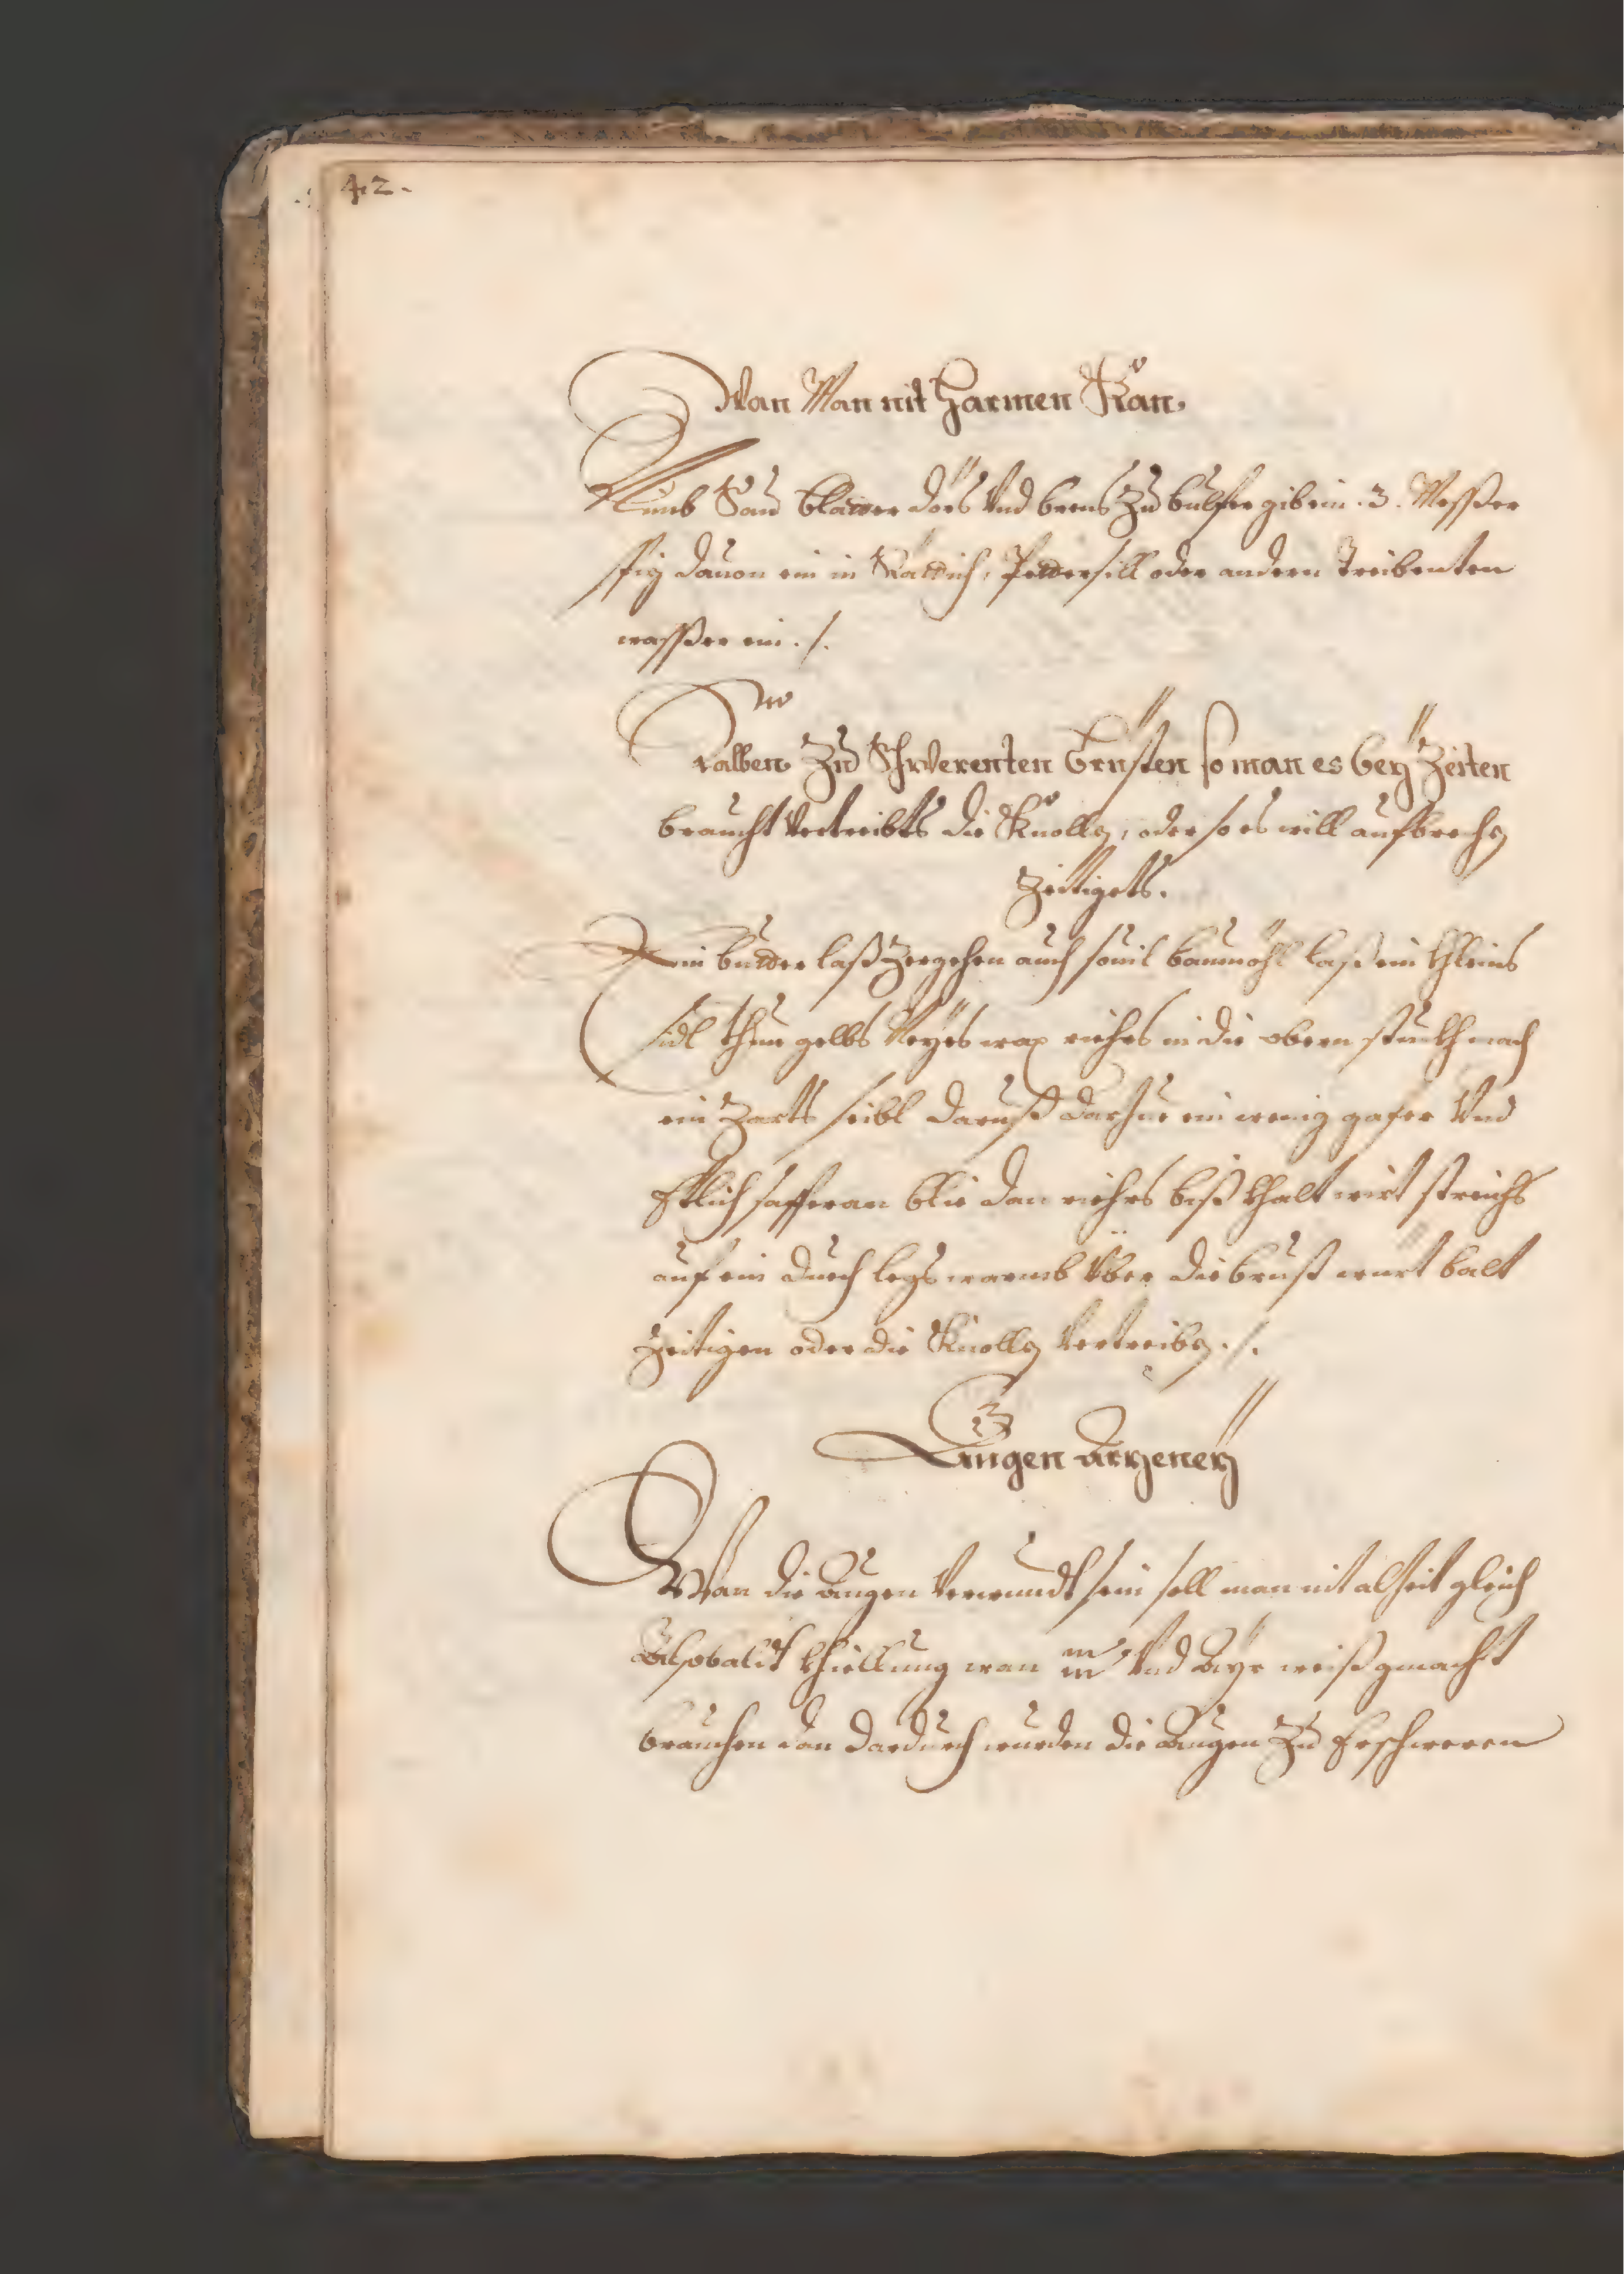 42.
Wan Man nit harmen Kan.
Nimb Sau blatter dörs Vnd brens Zu bulfer gib ein .3. Messer
spiz dauon ein in Rättich, Pettersill oder andern Treibenten
wasser ein ./.
Salben Zu Schwerenten Brüsten so man es beÿ Zeiten
braucht Vertreibts die Knollen, oder so es will aufbrechen
Zeitigets.
Ein butter laß Zergehen auch souil baumöhl laß ein khleins
sidl thue gelbs Neyes wax riehrs in die obern stuckh mach
ein Zarts seibl darauß darzue ein wenig gafer Vnd
Etlich safferan blie dan riehrs biß khalt wirt streichs
auf ein duech legs warmb Über die brust würt balt
Zeitigen oder die Knollen Vertreiben ./.
Augen Arzeneÿ
Wan die Augen Verwundt sein soll man nit alzeit gleich
Alsobaldt khiellung von Und Ayr weiß gemacht
brauchen dan dardurch wurden die Augen Zu Erschweren